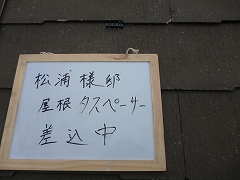 松浦様邸
屋根タスペーサー
差込中